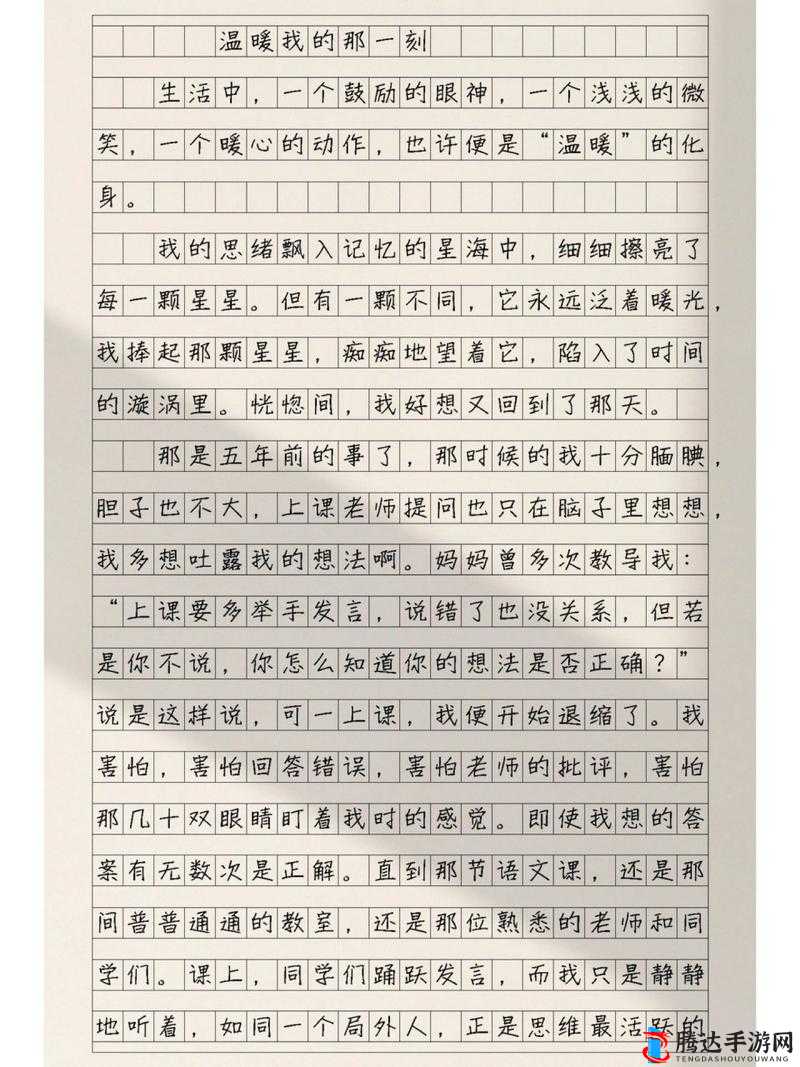 温暖我的那一刻
生活中，一个鼓励的眼神，一个浅浅的微
笑，一个暖心的动作，也许便是“温暖”的化
身。
我的思绪飘入记忆的星海中，细细擦亮了
每一颗星星。但有一颗不同，它永远泛着暖光，
我捧起那颗星星，痴痴地望着它，陷入了时间
的漩涡里。恍惚间，我好想又回到了那天。
那是五年前的事了，那时候的我十分腼腆，
胆子也不大，上课老师提问也只在脑子里想想，
我多想吐露我的想法啊。妈妈曾多次教导我：
“上课要多举手发言，说错了也没关系，但若
是你不说，你怎么知道你的想法是否正确？”
说是这样说，可一上课，我便开始退缩了。我
害怕，害怕回答错误，害怕老师的批评，害怕
那几十双眼睛盯着我时的感觉。即使我想的答
案有无数次是正解。直到那节语文课，还是那
间普普通通的教室，还是那位熟悉的老师和同
学们。课上，同学们踊跃发言，而我只是静静
地听着，如同一个局外人，正是思维最活跃的
腾达手游网
TENGDASHOUYOUWANG